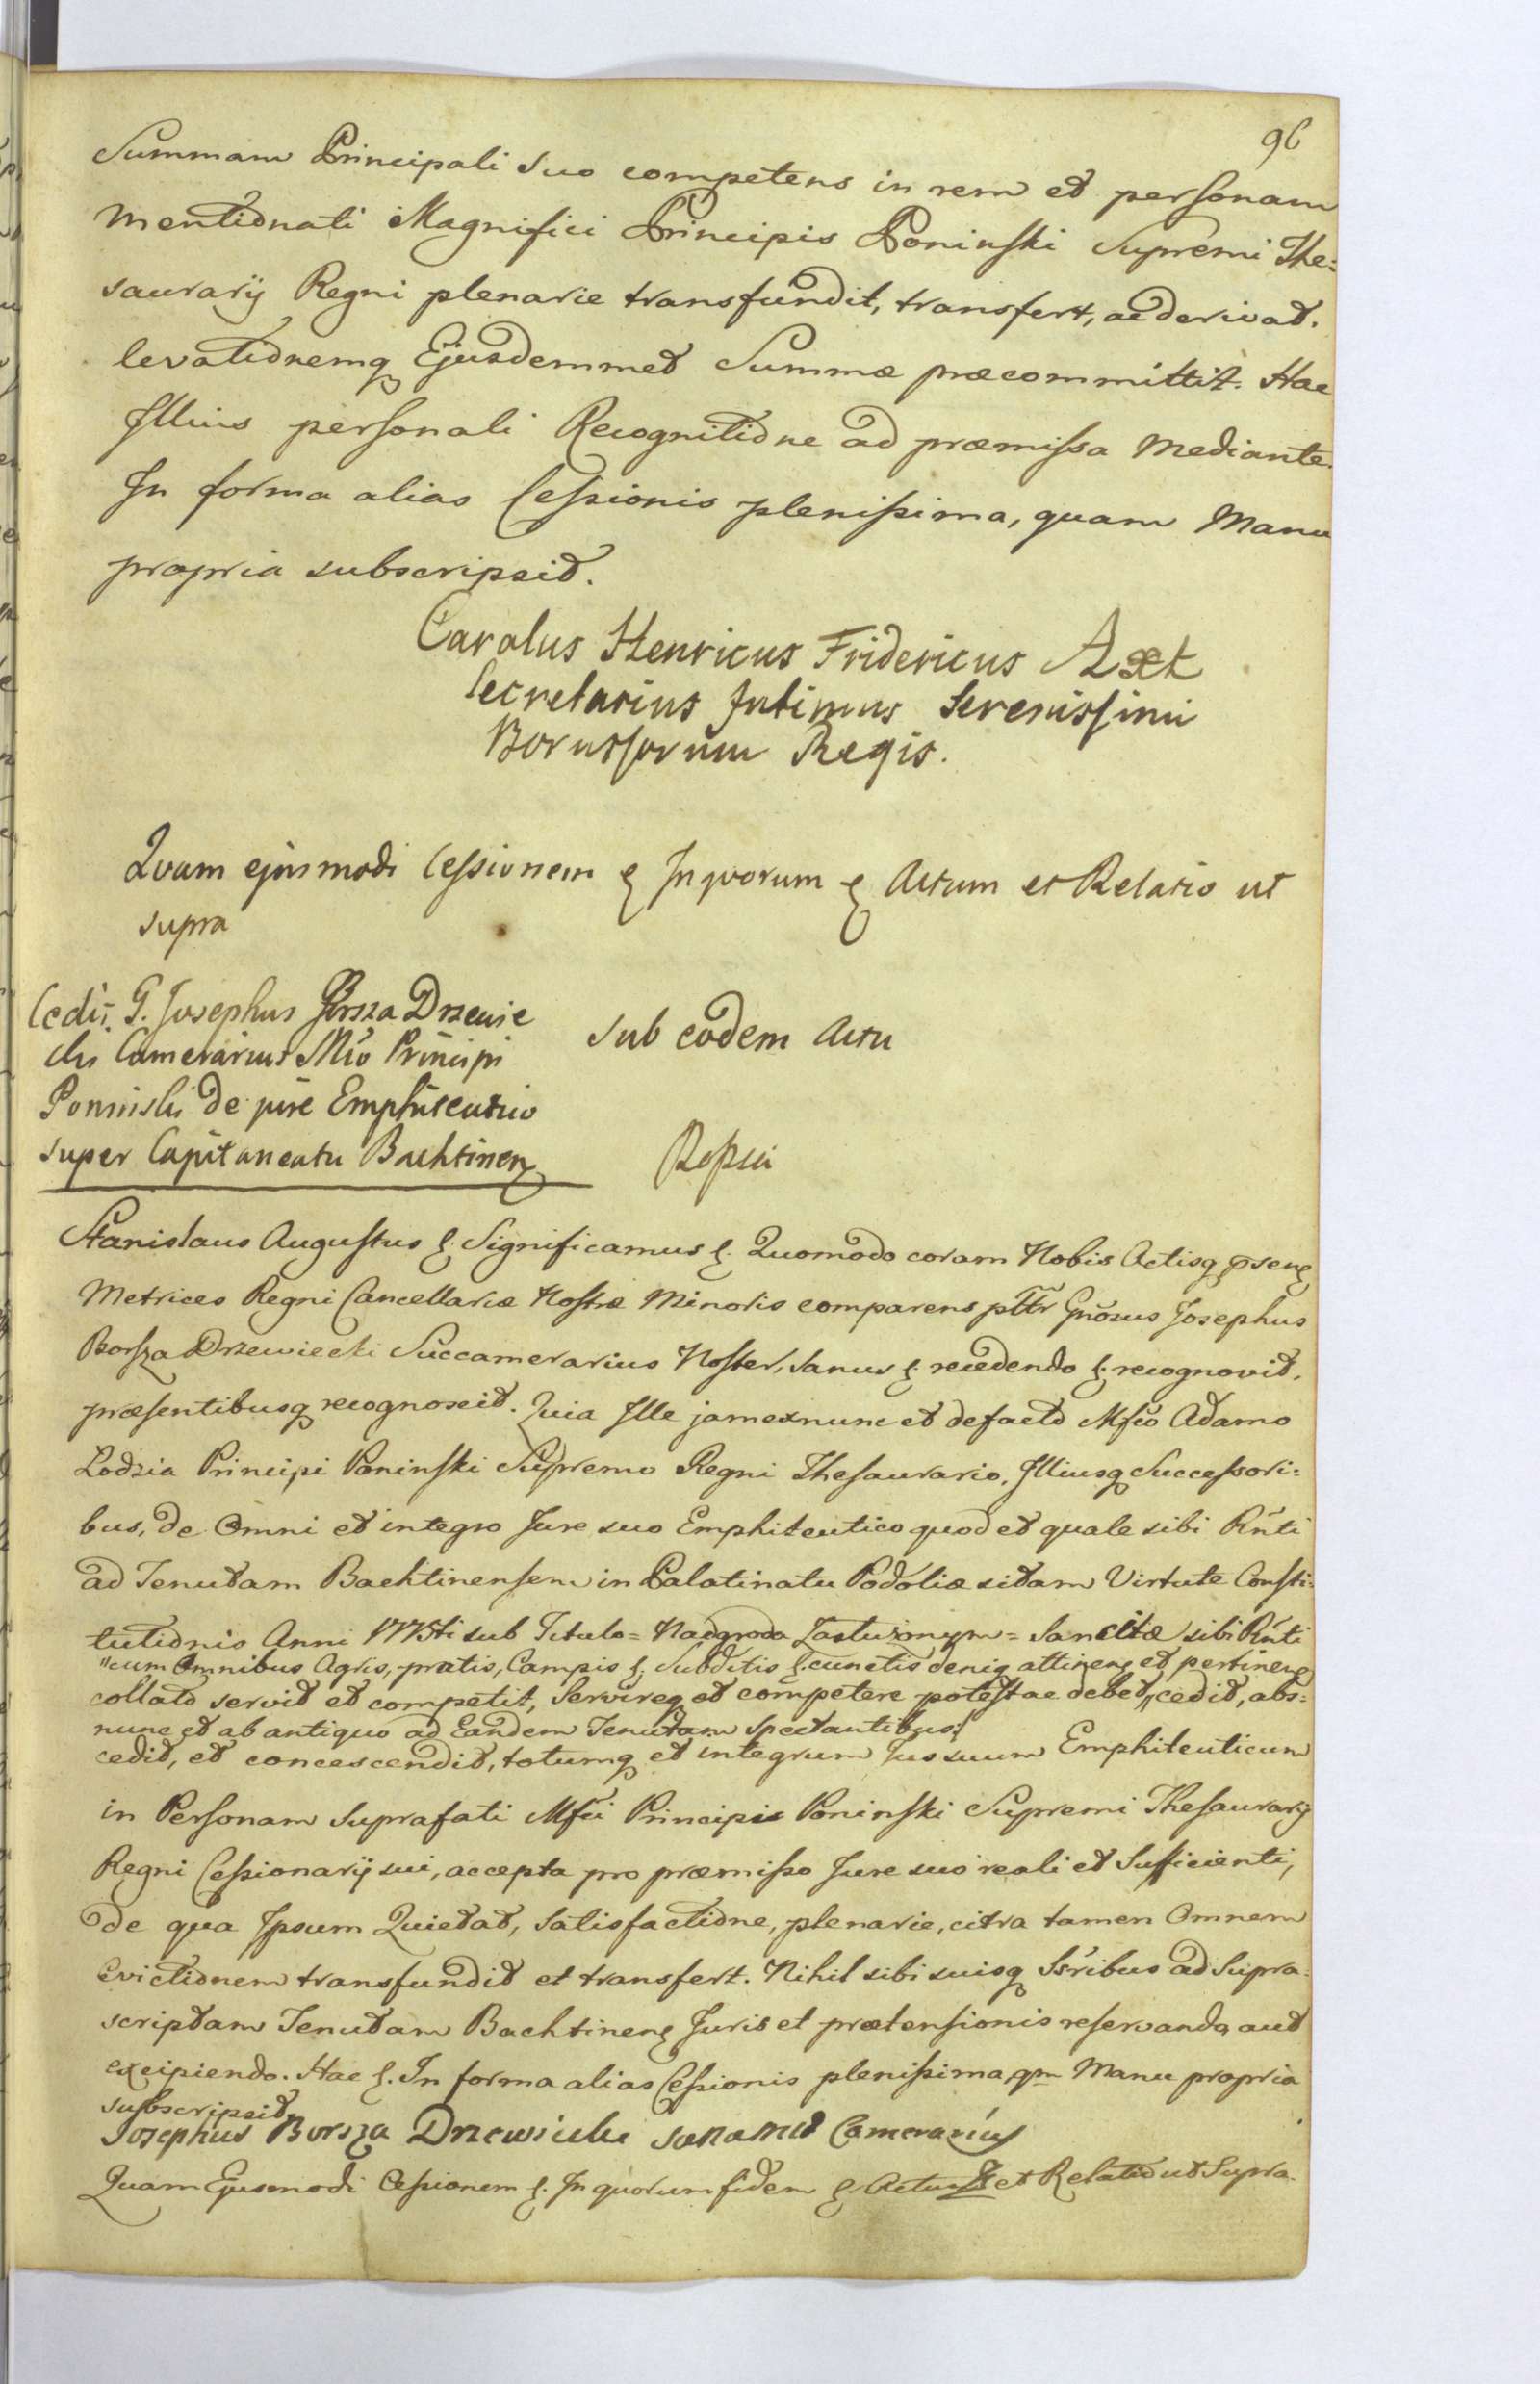 96
Summam Principali suo competens in rem et personam
mentionati Magnifici Principis Poninski Supremi The=
saurarij Regni plenarie transfundit, transfert, ac derivat.
levationemq Ejusdemmet Summæ præcommittit. Hac
Illius personali Recognitione ad præmissa mediante.
In forma alias Cessionis plenissima, quam Manu
propria subscripsit.
Carolus Henricus Fridericus Axt
Secretarius Intimus Serenissimi
Borussorum Regis.
Quam ejusmodi Cessionem & In quorum & Actum et Relatio ut
supra
Cedit G. Josephus Borsza Drzewie
cki Camerarius Mco Principi
Poninski de jure Emphiteutico
super Capitaneatu Bachtinen
sub eodem Actu
Stanislaus Augustus &. Significamus &. Quomodo coram Nobis Actisq pseng
Metrices Regni Cancellariæ Nostræ Minoris comparens pltr Gnosus Josephus
Borsza Drzewiecki Succamerarius Noster, sanus &. recedendo &. recognovit,
præsentibusq recognoscit. Quia Ille jam exnunc et defacto Mfco Adamo
Lodzia Principi Poninski Supremo Regni Thesaurario, Illiusq Successori=
bus, de Omni et integro Jure suo Emphiteutico quod et quale sibi Rnti
ad Tenutam Bachtinensem in Palatinatu Podoliæ sitam Virtute Consti=
tutionis Anni 1775ti sub Titulo = Nadgroda Zasłużonym = Sancitæ sibi Rnti
"cum Omnibus Agris, pratis, Campis &. Subditis &. cunctis deniq attineng et pertineng
collato servit et competit, Servireq et competere potest ac debet,, cedit, abs=
nunc et ab antiquo ad Eandem Tenutam spectantibus"
cedit, et concescendit, totumq et integrum Jus suum Emphiteuticum
in Personam suprafati Mfci Principis Poninski Supremi Thesaurarij
Regni Cessionarij sui, accepta pro præmisso Jure suo reali et Sufficienti,
de qua Ipsum Quietat, satisfactione, plenarie, citra tamen Omnem
evictionem transfundit et transfert. Nihil sibi suisq Ssribus ad Supra=
scriptam Tenutam Bachtineng Juris et prætensionis reservando aut
excipiendo. Hac &. In forma alias Cessionis plenissima, qm Manu propria
subscripsit.
Josephus Borsza Drzewiecki Camerarius
Quam Ejusmodi Cessionem &. In quorum fidem & Actum et Relatio ut Supra.